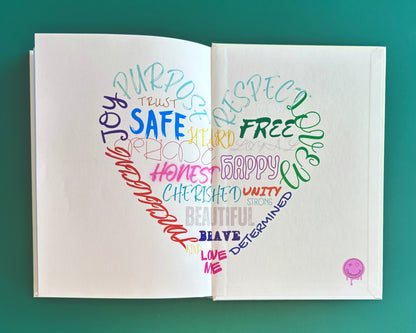 PURPOSE
RESPECT
JOY
TRUST
LOVED
SAFE
HEARD
FREE
PROUD
HONEST
HAPPY
CHERISHED
UNITY
STRONG
BEAUTIFUL
DETERMINED
BRAVE
LOVE
ME